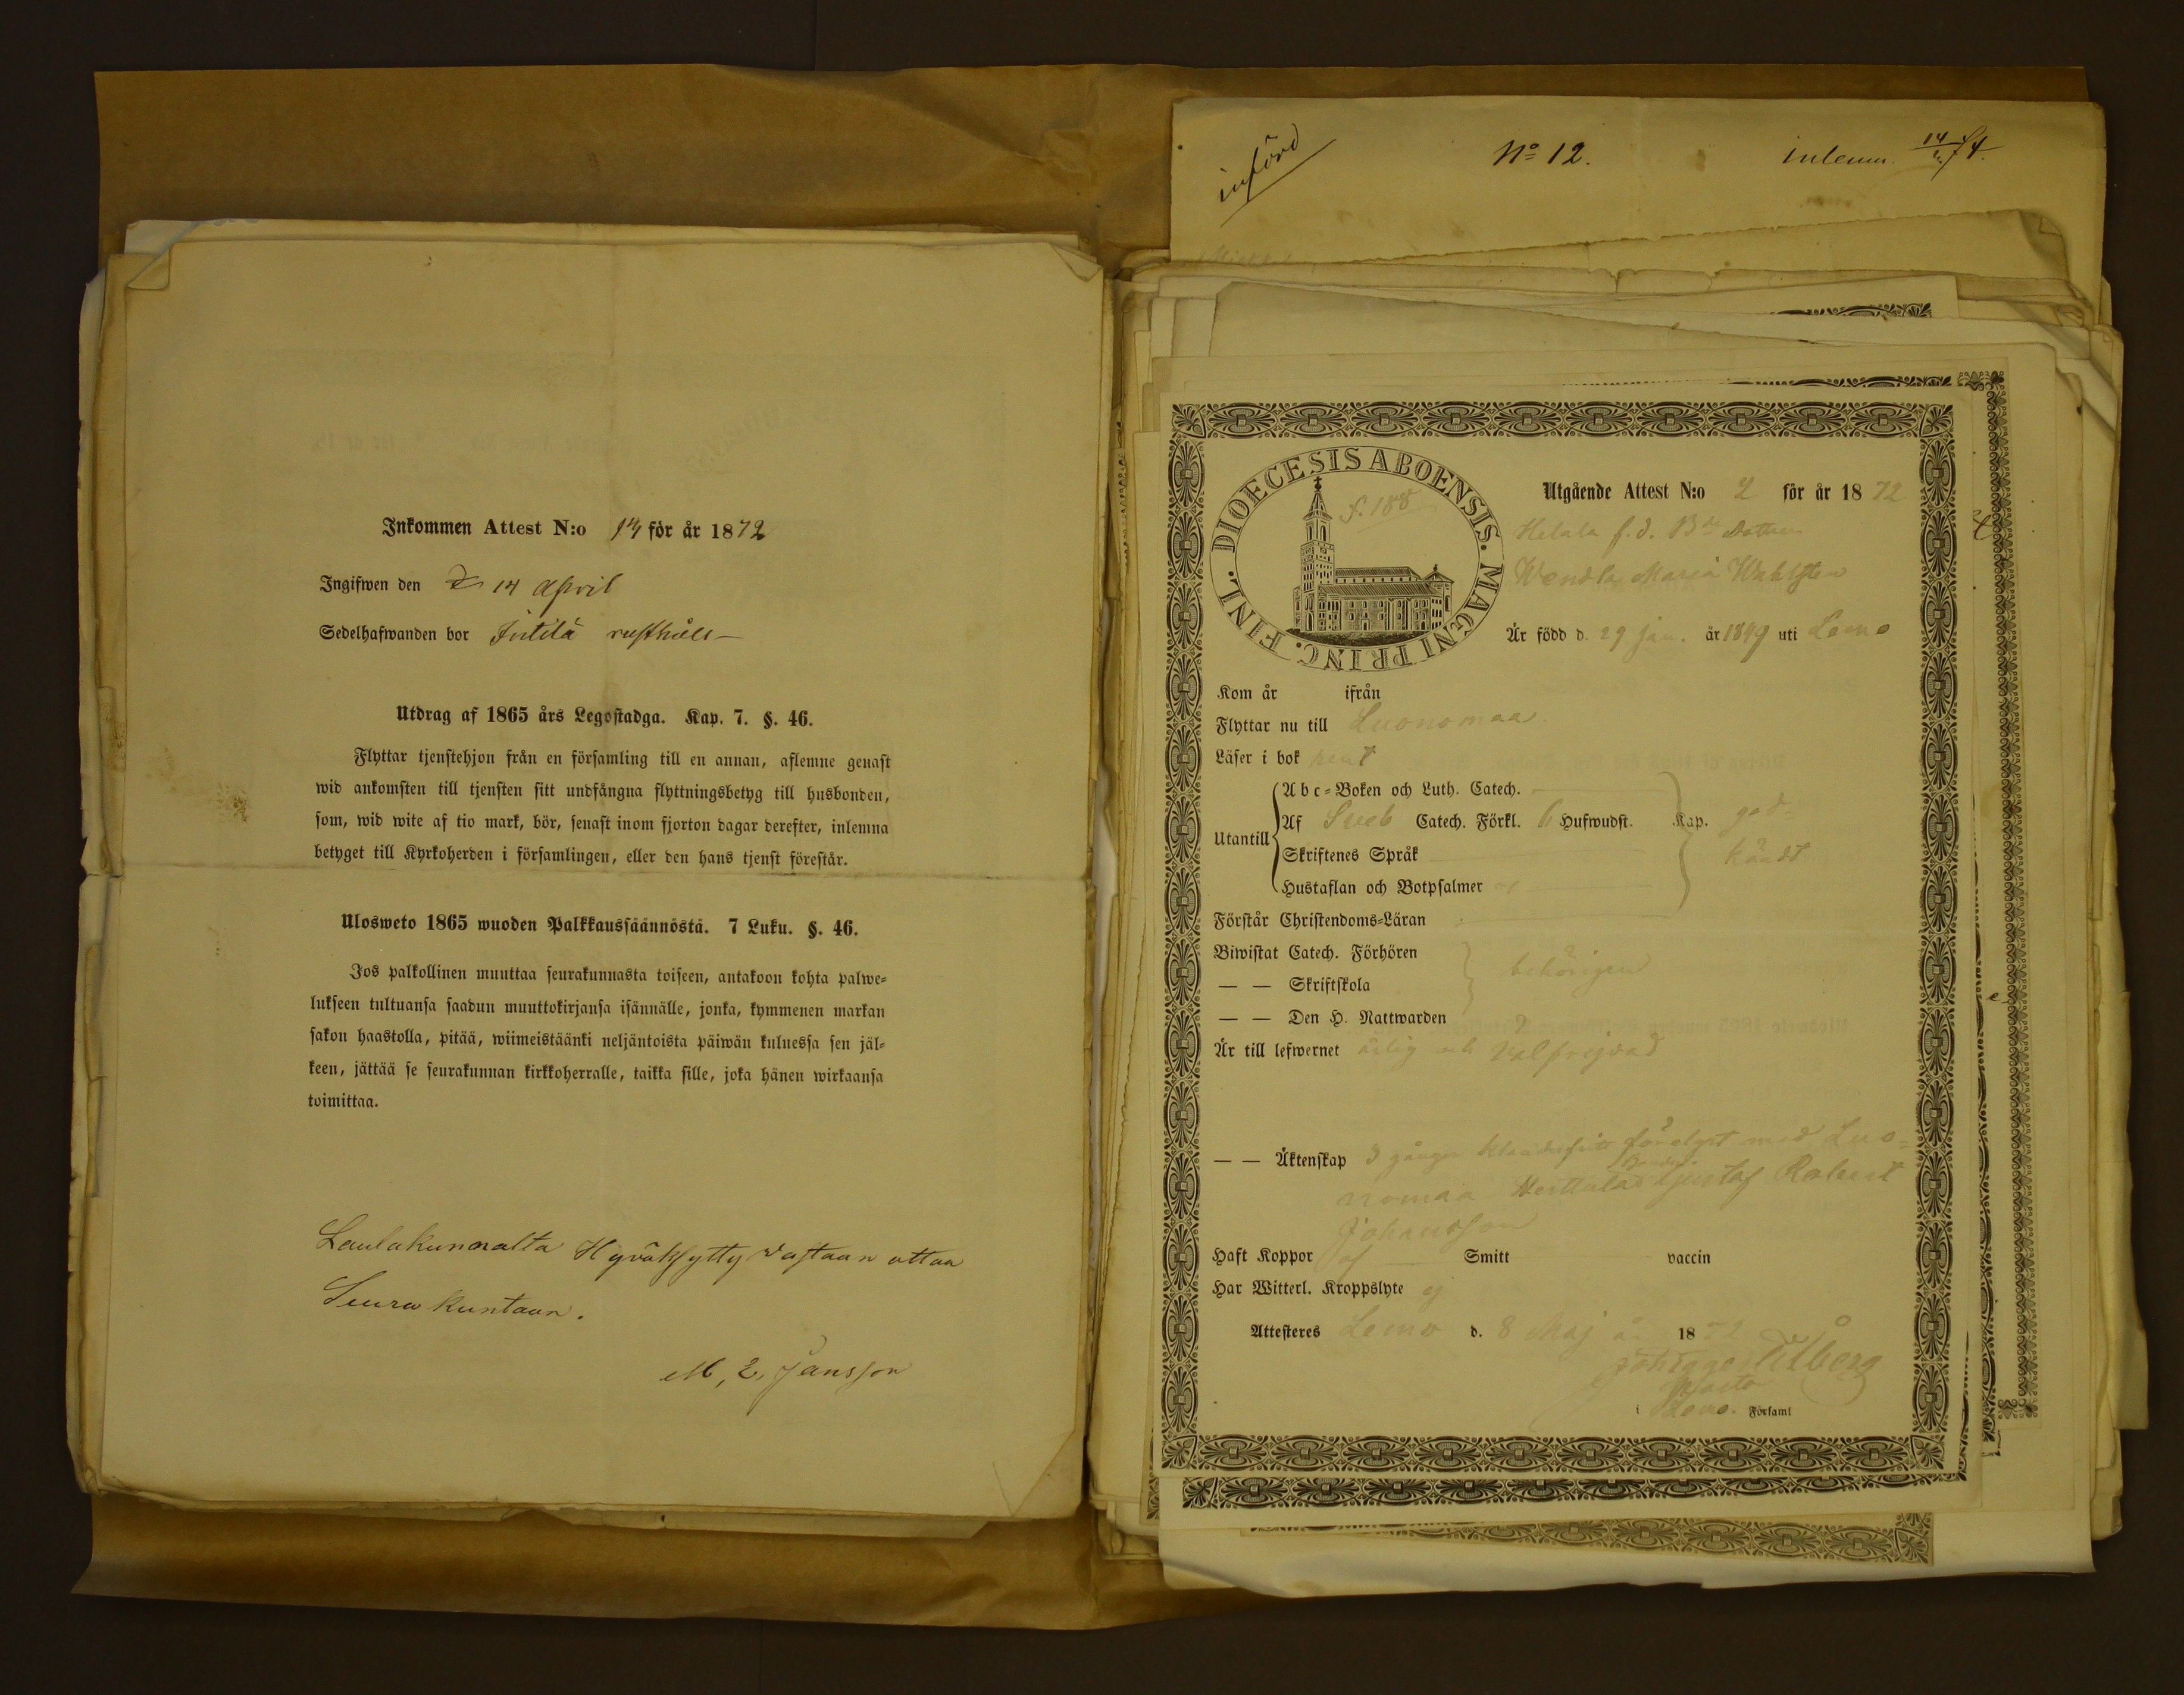 Inkommen Attest N:o 14 för år 1872
Ingifwen den 14 April
Sedelhafwanden bor Intilä rusthåll
Utdrag af 1865 års Legostadga. Kap. 7. §. 46.
Flyttar tjenstehjon från en församling till en annan, aflemne genast
wid ankomsten till tjensten sitt undfångna flyttningsbetyg till husbonden,
som, wid wite af tio mark, bör, senast inom fjorton dagar derefter, inlemna
betyget till Kyrkoherden i församlingen, eller den hans tjenst förestår.
Ulosweto 1865 wuoden Palkkaussäännöstä. 7 Luku. §. 46.
Jos palkollinen muuttaa seurakunnasta toiseen, antakoon kohta palwe=
lukseen tultuansa saadun muuttokirjansa isännälle, jonka, kymmenen markan
sakon haastolla, pitää, wiimeistäänki neljäntoista päiwän kuluessa sen jäl=
keen, jättää se seurakunnan kirkkoherralle, taikka sille, joka hänen wirkaansa
toimittaa.
Laulakunnalta Hyväksytty vastaan ottaa
Seura kuntaan.
M, E, Jansson
införd
No 12.
inlemn. 14/ 74.
DIOECESIS ABOENSIS. MAGNI PRINC. FINL.
f. 188
Utgående Attest N:o 2 för år 1872
f. d. Dottern
Wendla Maria Wahlsten
Är född d. 29 Jan. år 1849 uti Lemo
Kom år ifrån
Flyttar nu till Luonomaa
Läser i bok rent
Utantill
Abc=Boken och Luth. Catech.
Af Sveb Catech. Förkl. 6 Hufwudst. Kap. god=
Skriftenes Språk kändt
Hustaflan och Botpsalmer
Förstår Christendoms=Läran
Biwistat Catech. Förhören
— — Skriftskola behörigen
— — Den H. Nattwarden
Är till lefwernet ärlig och välfrejdad
— — Äktenskap 3 gånger förelyst med Luo=
nomaa Gustaf Robert
Johansson
Haft Koppor Smitt vaccin
Har Witterl. Kroppslyte ej
Attesteres Lemo d. 8 Maj 18
i Lemo. Församl